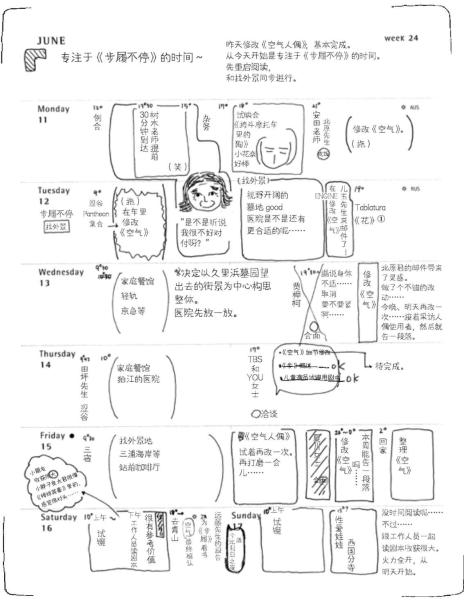 JUNE
专注于《步履不停》的时间～
昨天修改《空气人偶》，基本完成。
从今天开始是专注于《步履不停》的时间。
先重启阅读，
和找外景同步进行。
WEEK 24
Monday
11
例会
30分钟到达
树木老师提前
（笑）
杂务
试映会
《跨斗摩托车
里的
狗》
小花奈
好棒
安田老师
北原先生
修改《空气》。
（拖）
Tuesday
12
步履不停
找外景
9°
涩谷
Pantheon
集合
（拖）
在车里
修改
《空气》
“是不是听说
我很不好对
付呀？”
（找外景）
视野开阔的
墓地 good
医院是不是还有
更合适的呢……
在ENGINE
修改
《空气》
儿玉先生来邮件了！
19°
Tablatura
《花》①
Wednesday
13
家庭餐馆
轻轨
京急等
决定以久里浜墓园望
出去的街景为中心构思
整体。
医院先放一放。
费桦柯
据说身体
不适……
取消
要不要紧
啊……
会面
修改
《空气》
北原君的邮件带来
了灵感。
做了个不错的改
动……
今晚、明天再改一
次……接着采访人
偶使用者，然后就
告一段落。
Thursday
14
田坪先生
涩谷
家庭餐馆
狛江的医院
TBS
和
YOU
女士
洽谈
《空气》细节修改
OK
儿童演员试镜用剧本
OK
待完成。
Friday
15
三宿
找外景地
三浦海岸等
站前咖啡厅
《空气人偶》
试着再改一次。
再打磨一会
儿……
修改
《空气》
本周能告一段落
吗……
回家
整理
《空气》
Saturday
16
上午
试镜
下午
工作人员读剧本
很有参考价值
去青山
《空气》最终确认
为了《步履》看书
远藤先生的报告
Sunday
17
上午
试镜
性爱娃娃
西国分寺
没时间阅读呢……
不过……
跟工作人员一起
读剧本收获很大。
火力全开，从
明天开始。